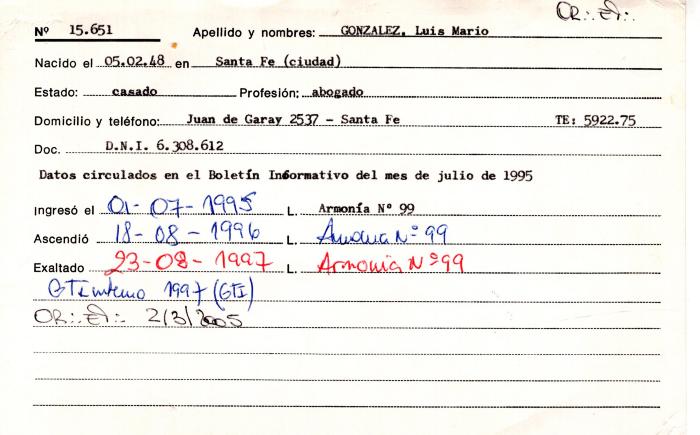 OR∴ ET∴
Nº 15.651 Apellido y nombres: GONZALEZ, Luis Mario
Nacido el 05.02.48 en Santa Fe (ciudad)
Estado: casado Profesión: abogado
Domicilio y teléfono: Juan de Garay 2537 - Santa Fe TE: 5922.75
Doc. D.N.I. 6.308.612
Datos circulados en el Boletín Informativo del mes de julio de 1995
Ingresó el 01-07-1995 L. Armonía Nº 99
Ascendió 18-08-1996 L. Armonia Nº 99
Exaltado 23-08-1997 L. Armonia Nº 99
GTInterno 1997 (GTI)
OR∴ ET∴ 2/3/2005